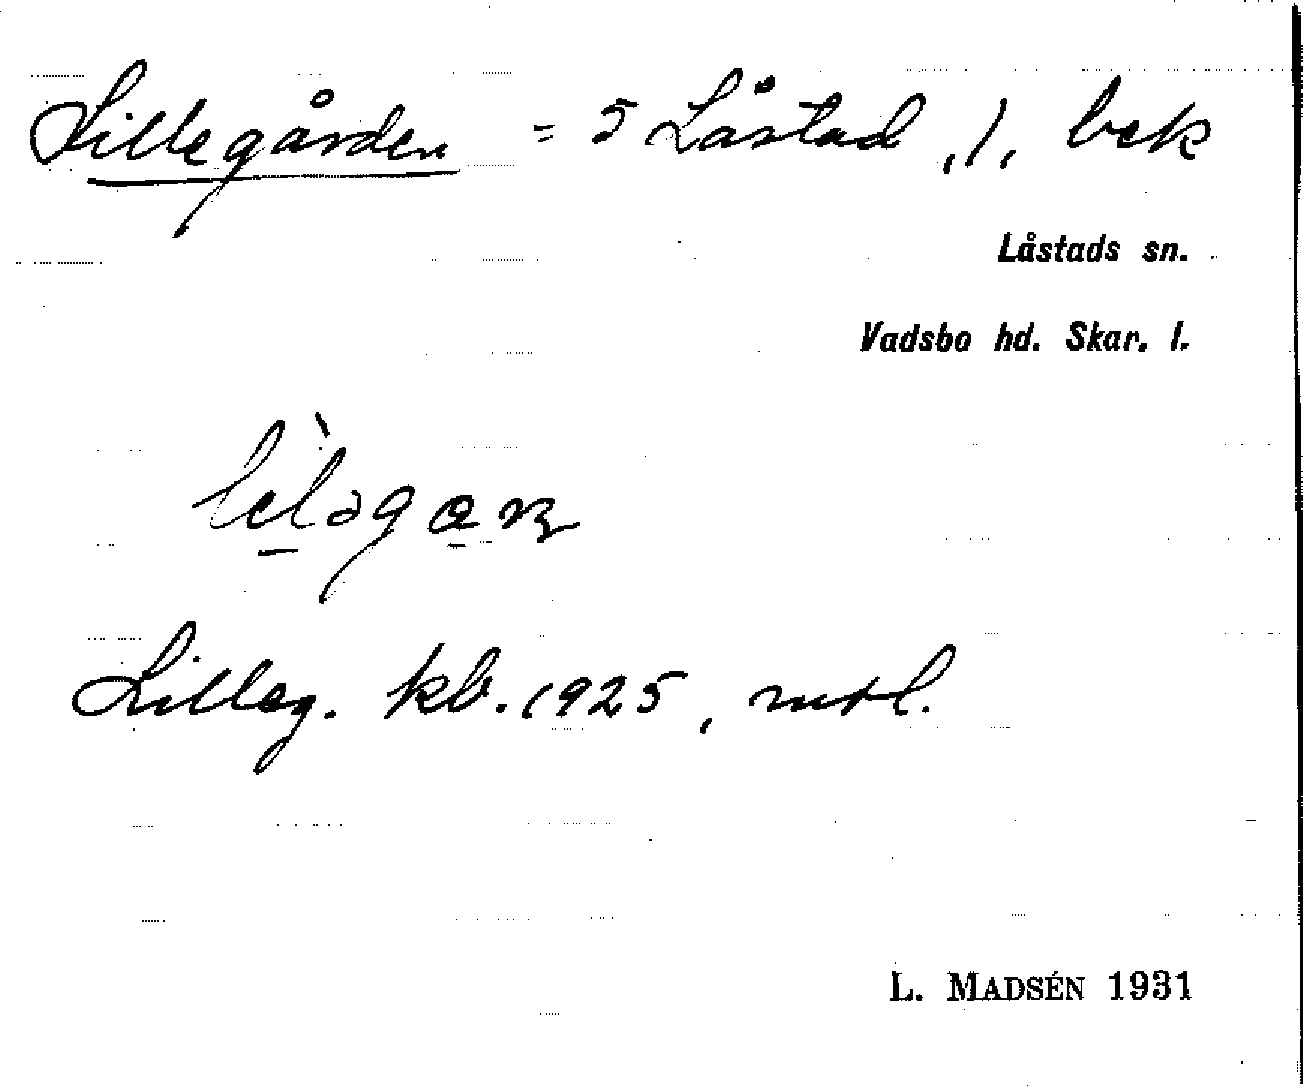 Lillegården = 5 Låstad, 1, bek
Låstads sn.
Vadsbo hd. Skar. l.
Lilleg. kb. 1925, mtl.
L. MADSÉN 1931